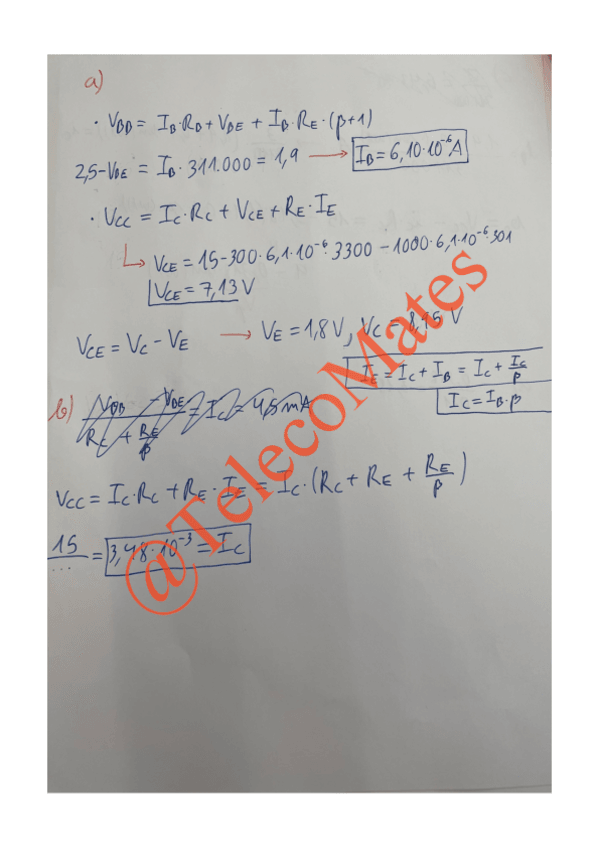 a)
· V_BB = I_B·R_B + V_BE + I_B·R_E·(β+1)
2,5-V_BE = I_B·311.000 = 1,9 → I_B = 6,10·10^-6 A
· V_CC = I_C·R_C + V_CE + R_E·I_E
↳ V_CE = 15-300·6,1·10^-6·3300 - 1000·6,1·10^-6·301
V_CE = 7,13 V
V_CE = V_C - V_E → V_E = 1,8 V, V_C = 8,95 V
I_E = I_C + I_B = I_C + I_C/β
I_C = I_B·β
b) (V_BB - V_BE)/(R_C + R_E/β) = I_C = 4,5 mA
V_CC = I_C·R_C + R_E·I_E = I_C·(R_C + R_E + R_E/β)
15/... = 3,48·10^-3 = I_C
@TelecoMates